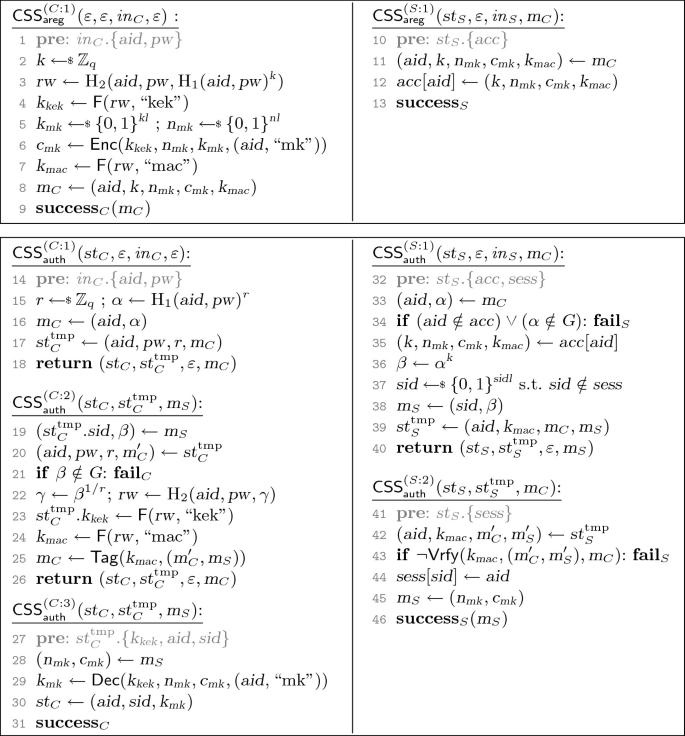 CSS_areg^(C:1)(ε, ε, in_C, ε) :
1 pre: in_C.{aid, pw}
2 k ←$ ℤ_q
3 rw ← H_2(aid, pw, H_1(aid, pw)^k)
4 k_kek ← F(rw, “kek”)
5 k_mk ←$ {0, 1}^kl ; n_mk ←$ {0, 1}^nl
6 c_mk ← Enc(k_kek, n_mk, k_mk, (aid, “mk”))
7 k_mac ← F(rw, “mac”)
8 m_C ← (aid, k, n_mk, c_mk, k_mac)
9 success_C(m_C)
CSS_areg^(S:1)(st_S, ε, in_S, m_C):
10 pre: st_S.{acc}
11 (aid, k, n_mk, c_mk, k_mac) ← m_C
12 acc[aid] ← (k, n_mk, c_mk, k_mac)
13 success_S
CSS_auth^(C:1)(st_C, ε, in_C, ε):
14 pre: in_C.{aid, pw}
15 r ←$ ℤ_q ; α ← H_1(aid, pw)^r
16 m_C ← (aid, α)
17 st_C^tmp ← (aid, pw, r, m_C)
18 return (st_C, st_C^tmp, ε, m_C)
CSS_auth^(C:2)(st_C, st_C^tmp, m_S):
19 (st_C^tmp.sid, β) ← m_S
20 (aid, pw, r, m′_C) ← st_C^tmp
21 if β ∉ G: fail_C
22 γ ← β^1/r; rw ← H_2(aid, pw, γ)
23 st_C^tmp.k_kek ← F(rw, “kek”)
24 k_mac ← F(rw, “mac”)
25 m_C ← Tag(k_mac, (m′_C, m_S))
26 return (st_C, st_C^tmp, ε, m_C)
CSS_auth^(C:3)(st_C, st_C^tmp, m_S):
27 pre: st_C^tmp.{k_kek, aid, sid}
28 (n_mk, c_mk) ← m_S
29 k_mk ← Dec(k_kek, n_mk, c_mk, (aid, “mk”))
30 st_C ← (aid, sid, k_mk)
31 success_C
CSS_auth^(S:1)(st_S, ε, in_S, m_C):
32 pre: st_S.{acc, sess}
33 (aid, α) ← m_C
34 if (aid ∉ acc) ∨ (α ∉ G): fail_S
35 (k, n_mk, c_mk, k_mac) ← acc[aid]
36 β ← α^k
37 sid ←$ {0, 1}^sidl s.t. sid ∉ sess
38 m_S ← (sid, β)
39 st_S^tmp ← (aid, k_mac, m_C, m_S)
40 return (st_S, st_S^tmp, ε, m_S)
CSS_auth^(S:2)(st_S, st_S^tmp, m_C):
41 pre: st_S.{sess}
42 (aid, k_mac, m′_C, m′_S) ← st_S^tmp
43 if ¬Vrfy(k_mac, (m′_C, m′_S), m_C): fail_S
44 sess[sid] ← aid
45 m_S ← (n_mk, c_mk)
46 success_S(m_S)